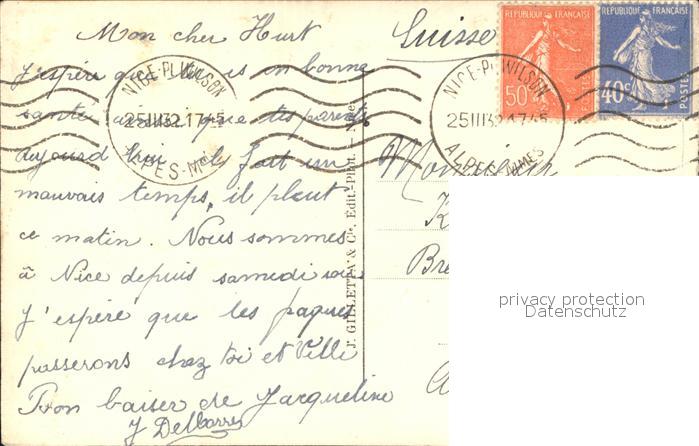 Mon cher Kurt
Suisse
J'espère que tu es en bonne
santé ainsi que tes parents
aujourd hui il fait un
mauvais temps, il pleut
ce matin. Nous sommes
à Nice depuis samedi soir
J'espère que les paques
passerons chez toi et Villi
Bon baiser de Jacqueline
J Delbarre
J. GILLETTA & Cie, Édit.-Phot. - Nice
REPUBLIQUE FRANÇAISE
50c
POSTES
REPUBLIQUE FRANÇAISE
40c
POSTES
NICE-PL. WILSON
25 III 32 17 45
ALPES-Mmes
NICE-PL. WILSON
25 III 32 17 45
ALPES-MMES
Monsieur
K
Bre
privacy protection
Datenschutz